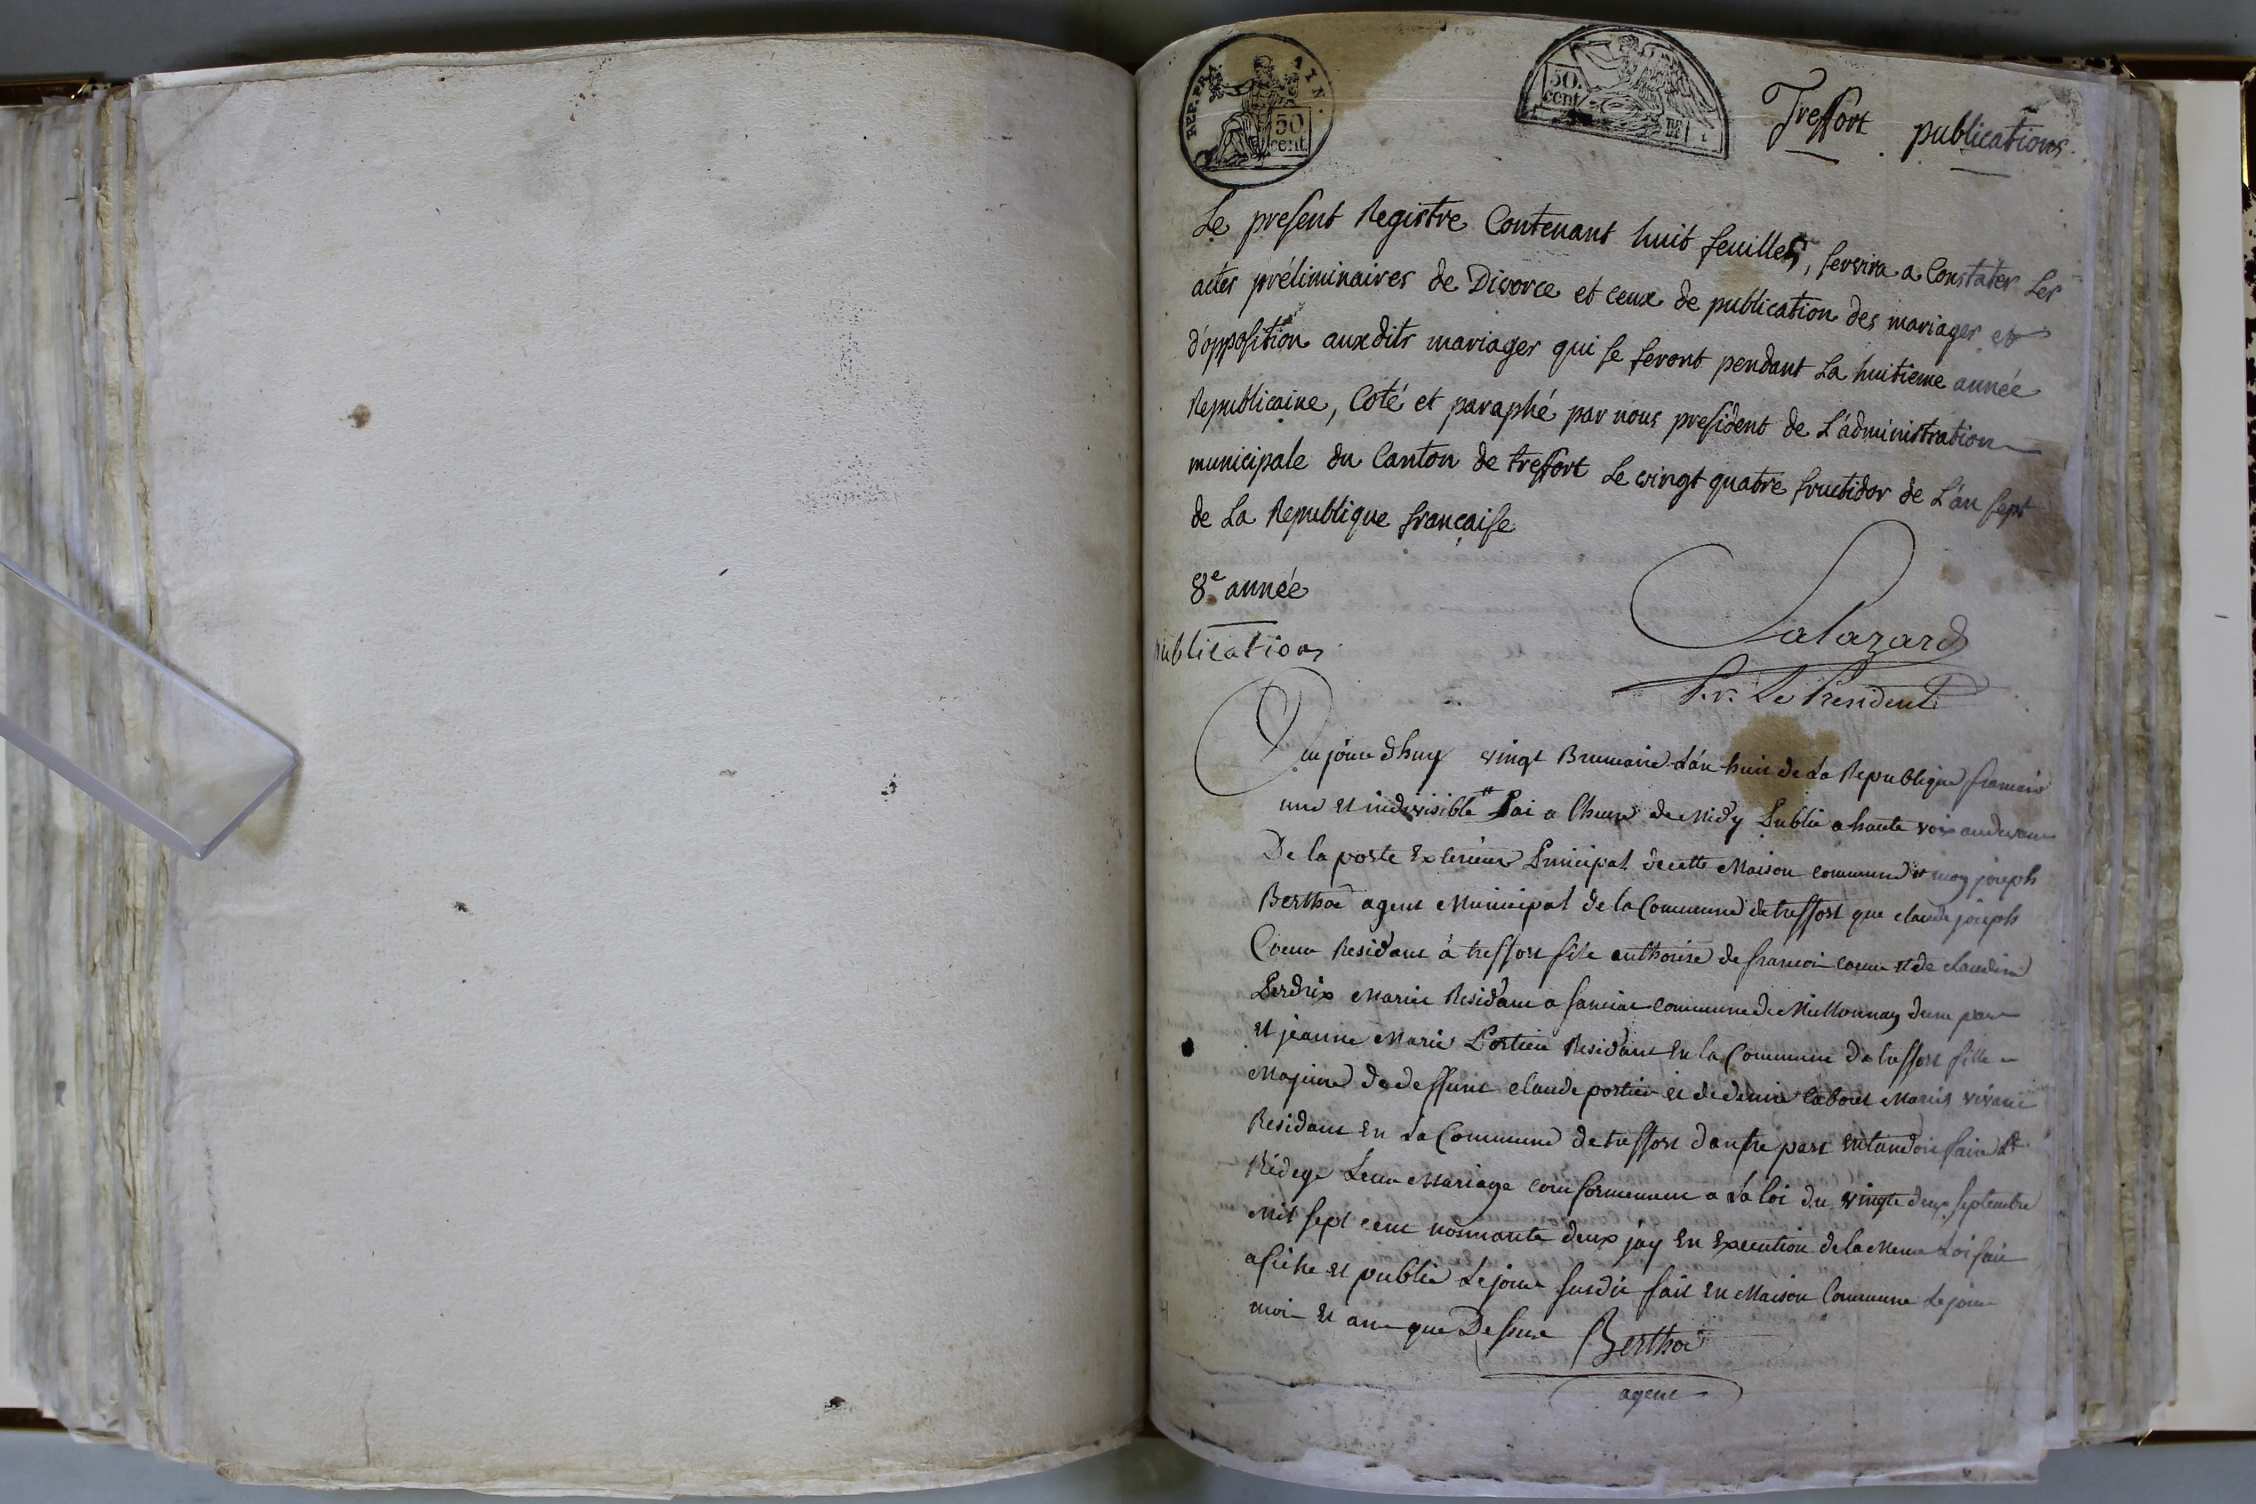 REP. FRA. AIN.
50
cent.
50.
cent
Treffort publications
Le present Registre Contenant huit feuilles, servira a Constater Les
actes préliminaires de Divorce et ceux de publication des mariages et
d'opposition auxdits mariages qui se feront pendant La huitieme année
Republicaine, Coté et paraphé par nous president de L'administration
municipale du Canton de treffort Le vingt quatre fructidor de L'an sept
de La Republique française
8e année
publications
Salazard
P.r. Le President
aujourdhuy vingt Brumaire L'an huit de La Republique francaise
une et indivisible Jai a lheure de Midy Publié a haute voix audevant
De la porte Exterieure Principal de cette Maison commune et moy joseph
Berthod agent Municipal de la Commune de treffort que claude joseph
Coeur Residant à treffort fils authorisé de francois coeur et de claudine
Perdrix Mariés Residant a sanciat commune de Meillonnay dune part
et jeanne Marie Portier Residant En la Commune de treffort fille
Majeure de deffunt claude portier et de denise Mariés vivant
Residant En La Commune de treffort dautre part Entandoit faire et
Rédege Leur Mariage conformement a La loi du vingte deux septembre
Mil sept cent nonnante deux jay En Execution de la Meme Loi fait
afiche et publié Le jour susdit fait en Maison Commune Le jour
moi et an que Dessus Berthod
agent